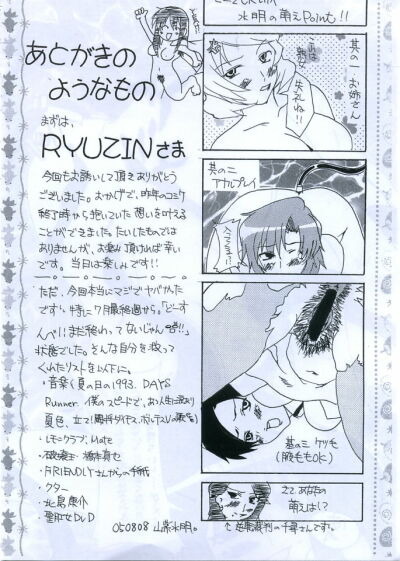 あとがきの
ようなもの
まずは、
RYUZINさま
今回もお誘いして頂きありがとう
ございました。おかげで、昨年のコミケ
終了時から抱いていた想いを叶える
ことができました。たいしたものでは
ありませんが、お楽み頂ければ幸い
です。当日は楽しみです!!
ただ、今回本当にマジでヤバかったん
です。特に7月最終週から。「どーす
んべ!!まだ終わってないじゃん
状態でした。そんな自分を救って
くれたリストを以下に。
・音楽(夏の日の1993. DAYS
Runner. 僕のスピードで、お人生に涙あり
夏色、
・レモンクラブ, Mate
・FRIENDLYさんからの手紙
・クター
・北島康介
・聖乳女DVD
050808 山紫水明。
水明の萌えPoint!!
其の一 お姉さん
失礼ね!!
其の二
アナルプレイ
其の三 ケツ毛
(腋毛もOK)
さて、あなたの
萌えは!?
↑逆転裁判の千尋さんです。